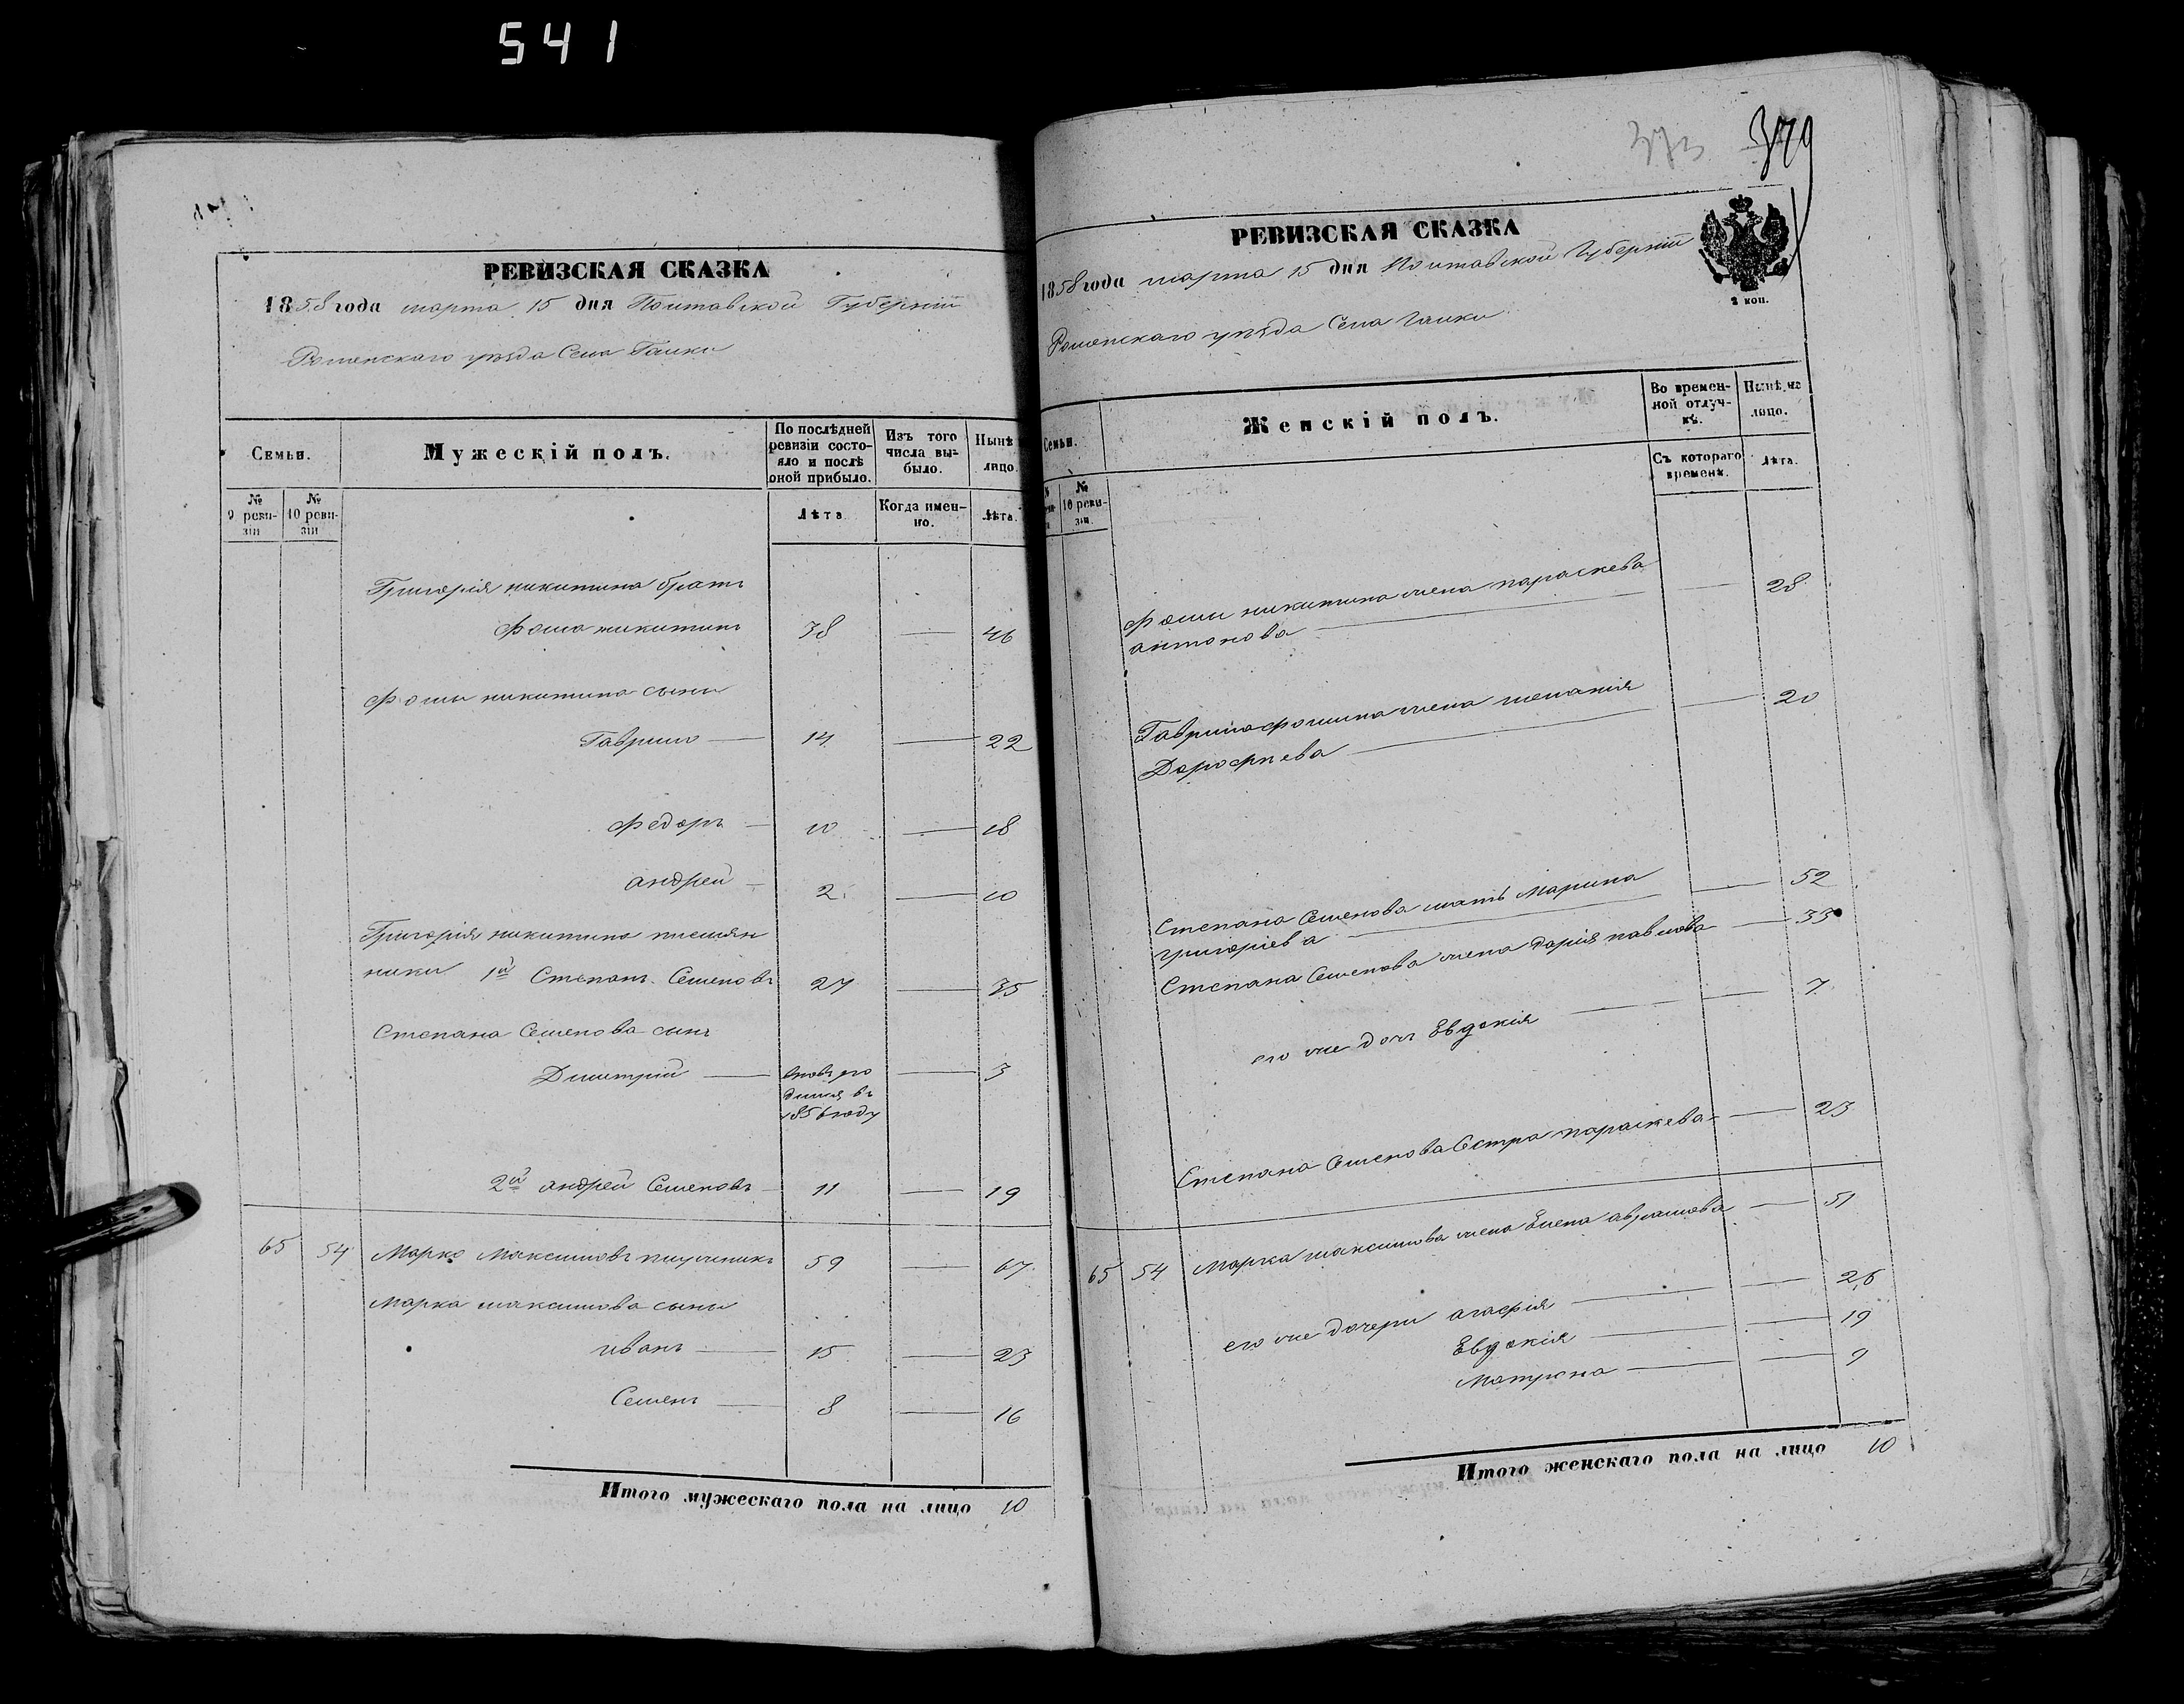 541
РЕВИЗСКАЯ СКАЗКА
1858 года марта 15 дня Полтавской Губерніи
Роменскаго уѣзда Села Галки
Семьи.
Мужескій полъ.
По послѣдней ревизіи состо-яло и послѣ оной прибыло.
Изъ того числа вы-было.
Нынѣ лицо.
№ 9 реви-зіи
№ 10 реви-зіи
Лѣта
Когда имен-но.
Лѣта.
Григорія никитина братъ
Фома никитинъ 38 — 46
Фомы никитина сыны
Гаврило — 14 — 22
Федоръ — 10 — 18
андрей — 2 — 10
Григорія никитина племян
ники 1й Степанъ Семеновъ 27 — 35
Степана Семенова сынъ
Димитрій — — 3
1856 году
2й андрей Семеновъ 11 — 19
65 54 Марко Максимовъ 59 — 67
Марка максимова сыны
иванъ — 15 — 23
Семенъ — 8 — 16
Итого мужескаго пола на лицо 10
373 379
РЕВИЗСКАЯ СКАЗКА
1858 года марта 15 дня Полтавской Губерніи
2 коп.
Роменскаго уѣзда Села Галки
Семьи.
Женскій полъ.
Во времен-ной отлуч-кѣ.
Нынѣ на лицо.
№ 10 реви-зіи.
Съ котораго времени.
Лѣта.
Фомы никитина жена параскева — 28
антонова —
Гаврила фомина жена меланія — 20
Дорофѣева —
Степана Семенова мать Марина — 52
григоріева —
Степана Семенова жена дарія павлова — 33
его же дочь Евдокія — 7
Степана Семенова Сестра параскева — 23
65 54 Марка максимова жена Елена аврамова — 51
его же дочери агафія — 26
Евдокія — 19
Матрона — 9
Итого женскаго пола на лицо 10